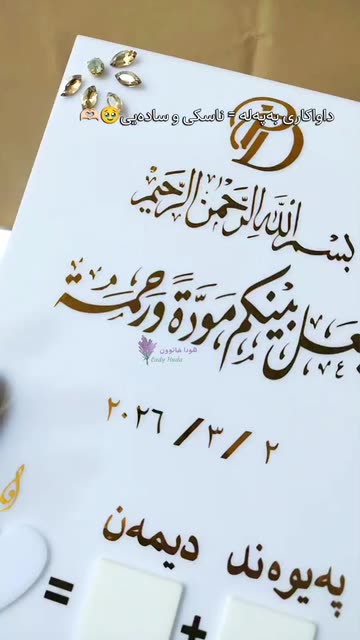 داواکاری بەپەلە = ناسکی و سادەیی🥹🫶🏻
بسم الله الرحمن الرحيم
عل بينكم مودة ورحمة
هودا خاتوون
Lady Huda
٢ / ٣ / ٢٠٢٦
پەیوەند دیمەن
= +